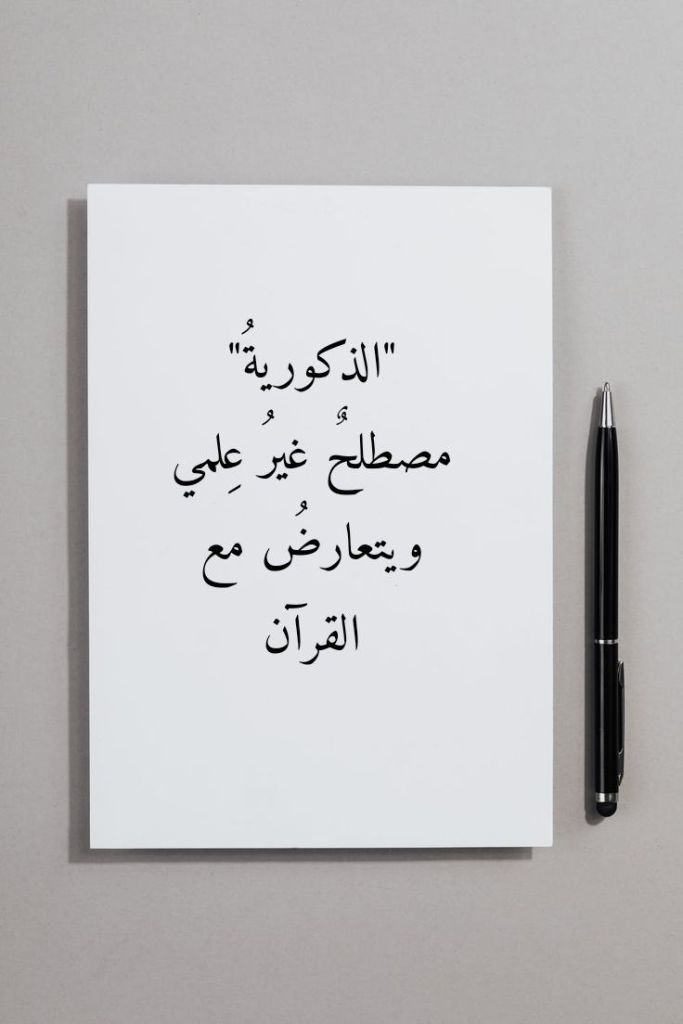 "الذكوريةُ"
مصطلحٌ غيرُ عِلمي
ويتعارضُ مع
القرآن